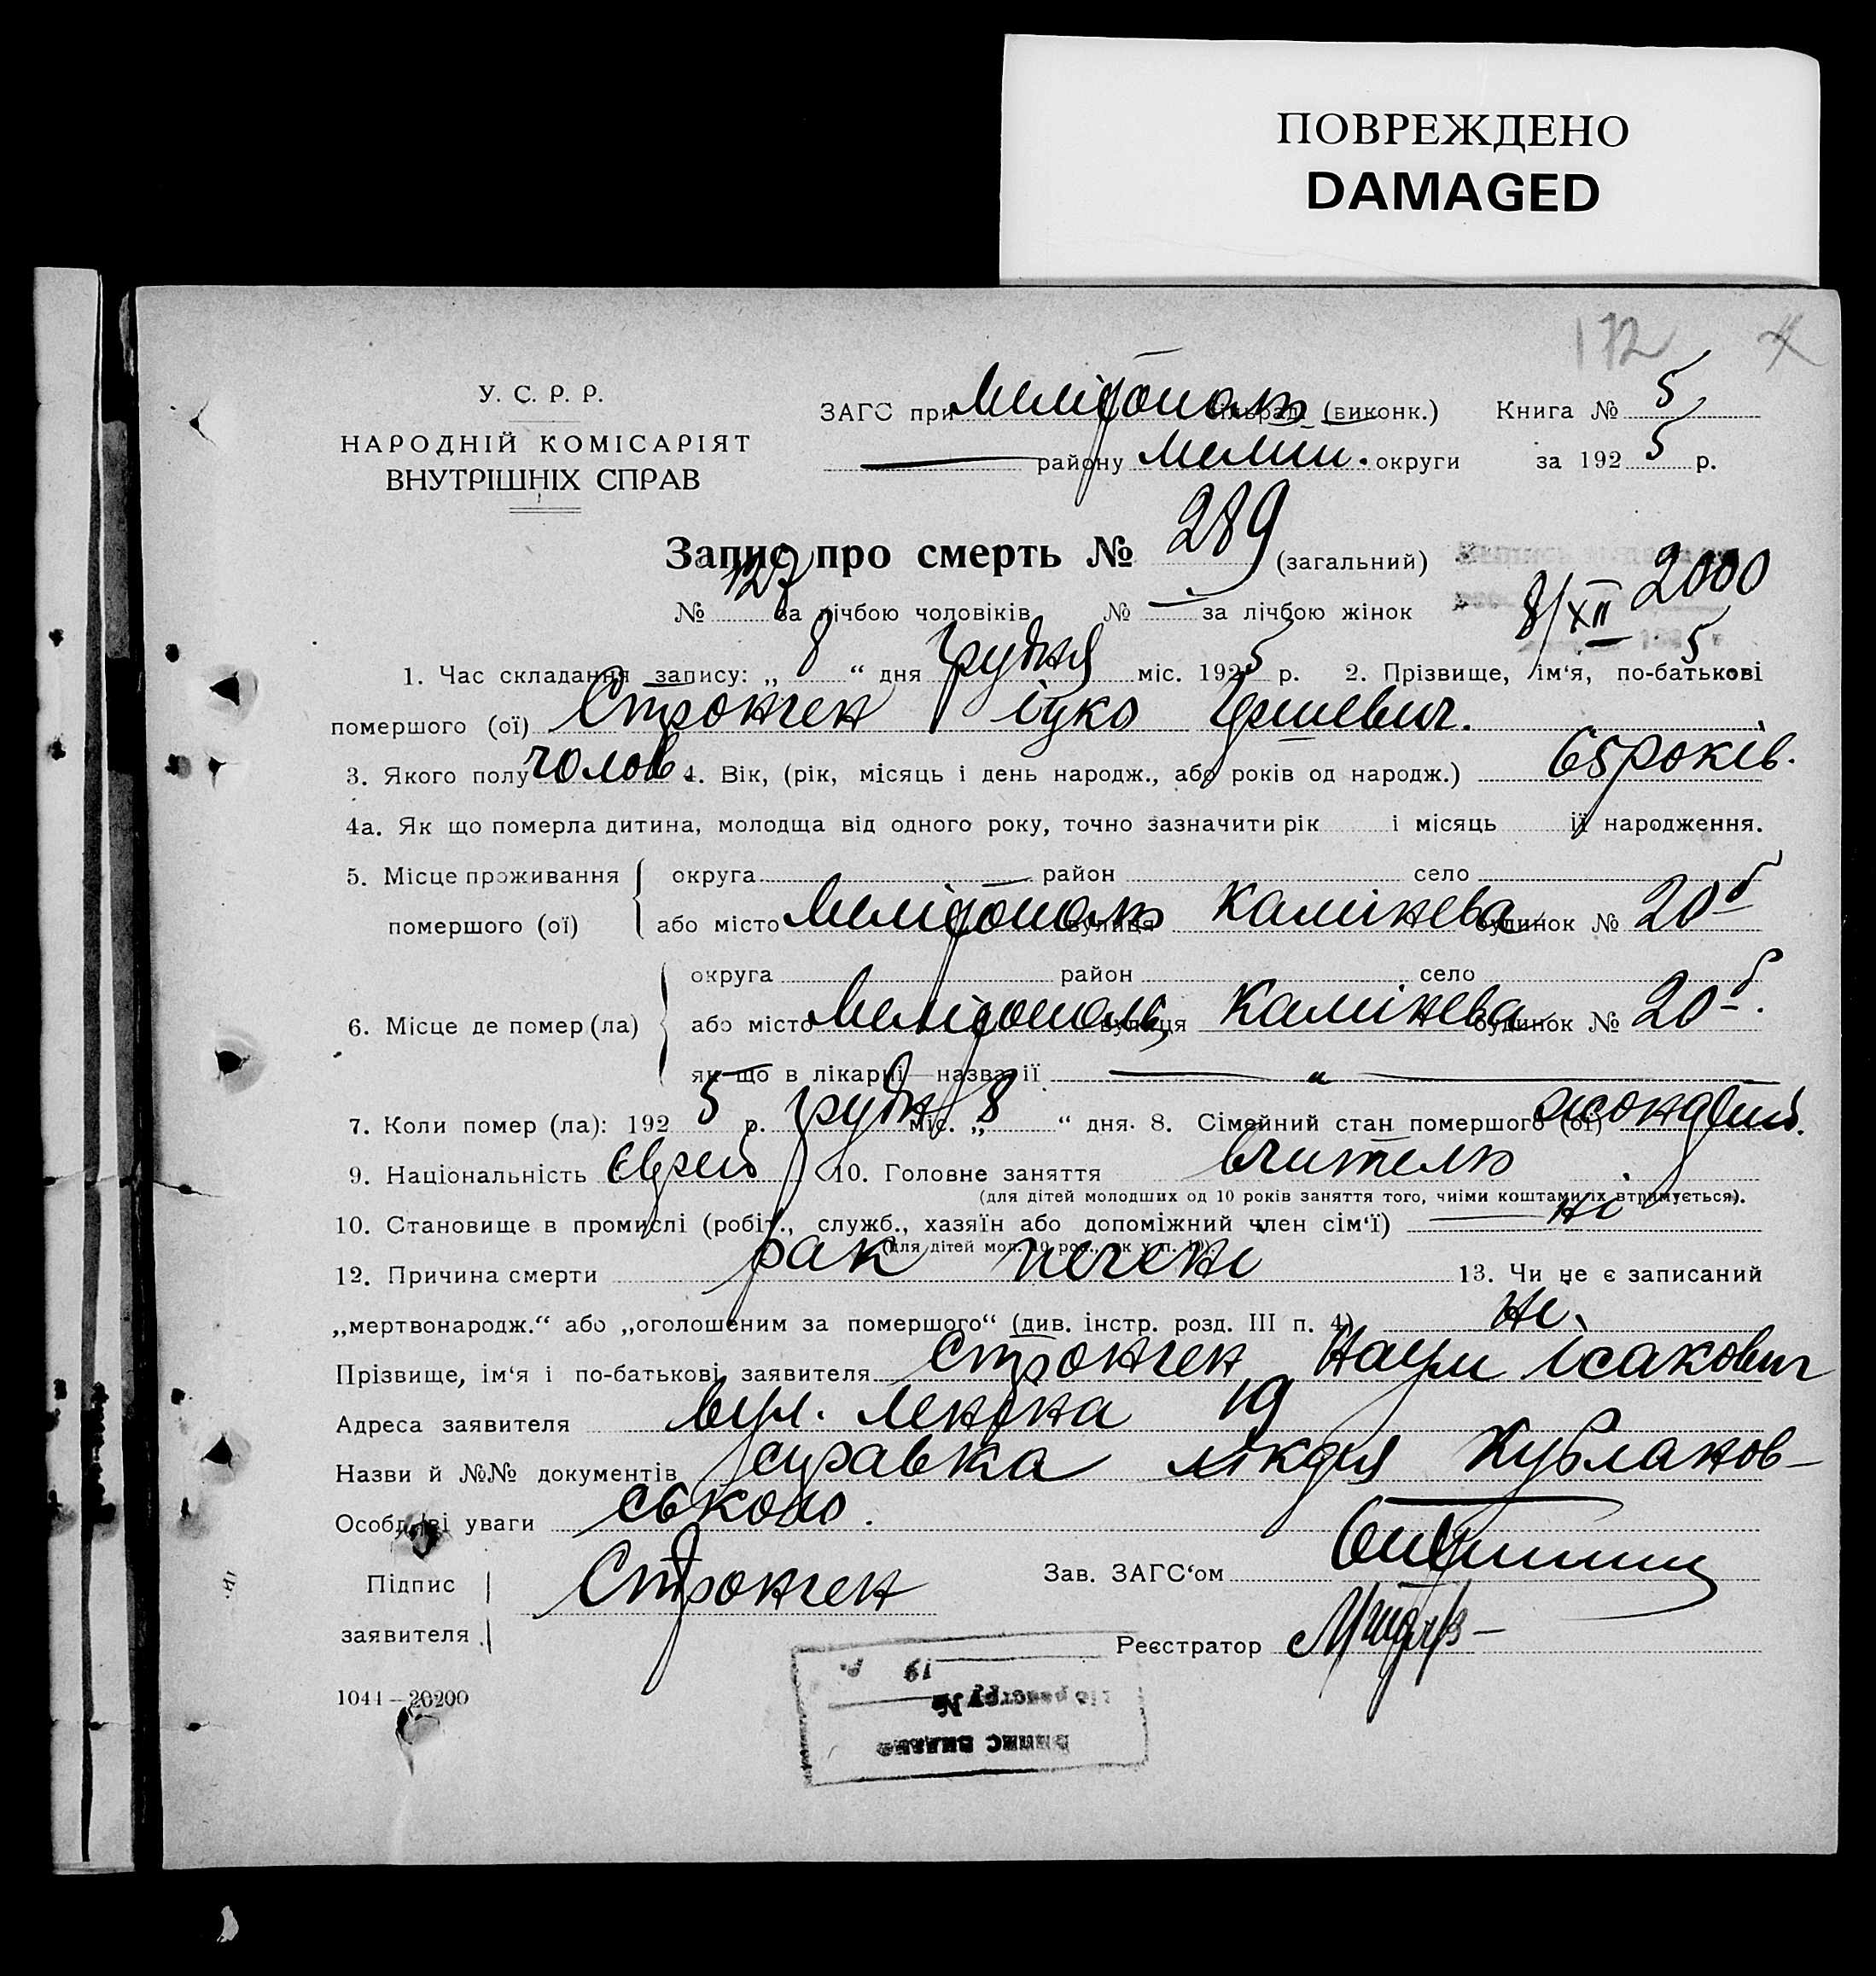 ПОВРЕЖДЕНО
DAMAGED
172
У. С. Р. Р.
НАРОДНІЙ КОМІСАРІЯТ
ВНУТРІШНІХ СПРАВ
ЗАГС при Меліտополь (виконк.) Книга № 5
— району Мелит. округи за 192 5 р.
Запис про смерть № 289 (загальний)
№ 127 за лічбою чоловіків № — за лічбою жінок
8/XII 2000
5
1. Час складання запису: „ 8 “ дня грудня міс. 192 5 р. 2. Прізвище, ім‘я, по-батькові
помершого (ої) Стронген іцко Гршевич.
3. Якого полу чолов. 4. Вік, (рік, місяць і день народж., або років од народж.) 65 років.
4а. Як що померла дитина, молодща від одного року, точно зазначити рік і місяць її народження.
5. Місце проживання помершого (ої) округа район село
або місто Мелітополь вулиця Камінева будинок № 20 б
6. Місце де помер (ла) округа район село
або місто Мелітополь вулиця Камінева будинок № 20 б.
як що в лікарні—назва ії — „ —
7. Коли помер (ла): 192 5 р. грудн міс. „ 8 “ дня. 8. Сімейний стан помершого (ої) жонатий.
9. Національність Єврей 10. Головне заняття вчитель
(для дітей молодших од 10 років заняття того, чиіми коштами їх втримується).
10. Становище в промислі (робіт., служб., хазяїн або допоміжний член сім‘ї) — ні
(для дітей мол. 10 рок., як у п. 10).
12. Причина смерти рак печені 13. Чи не є записаний
„мертвонародж.“ або „оголошеним за помершого“ (див. інстр. розд. III п. 4) ні.
Прізвище, ім‘я і по-батькові заявителя Стронген Наум Ісакович
Адреса заявителя вул. Леніна 19
Назви й №№ документів справка лікаря Курланов-
Особливі уваги ського.
Підпис заявителя Стронген
Зав. ЗАГС‘ом
Реєстратор
1041—20200